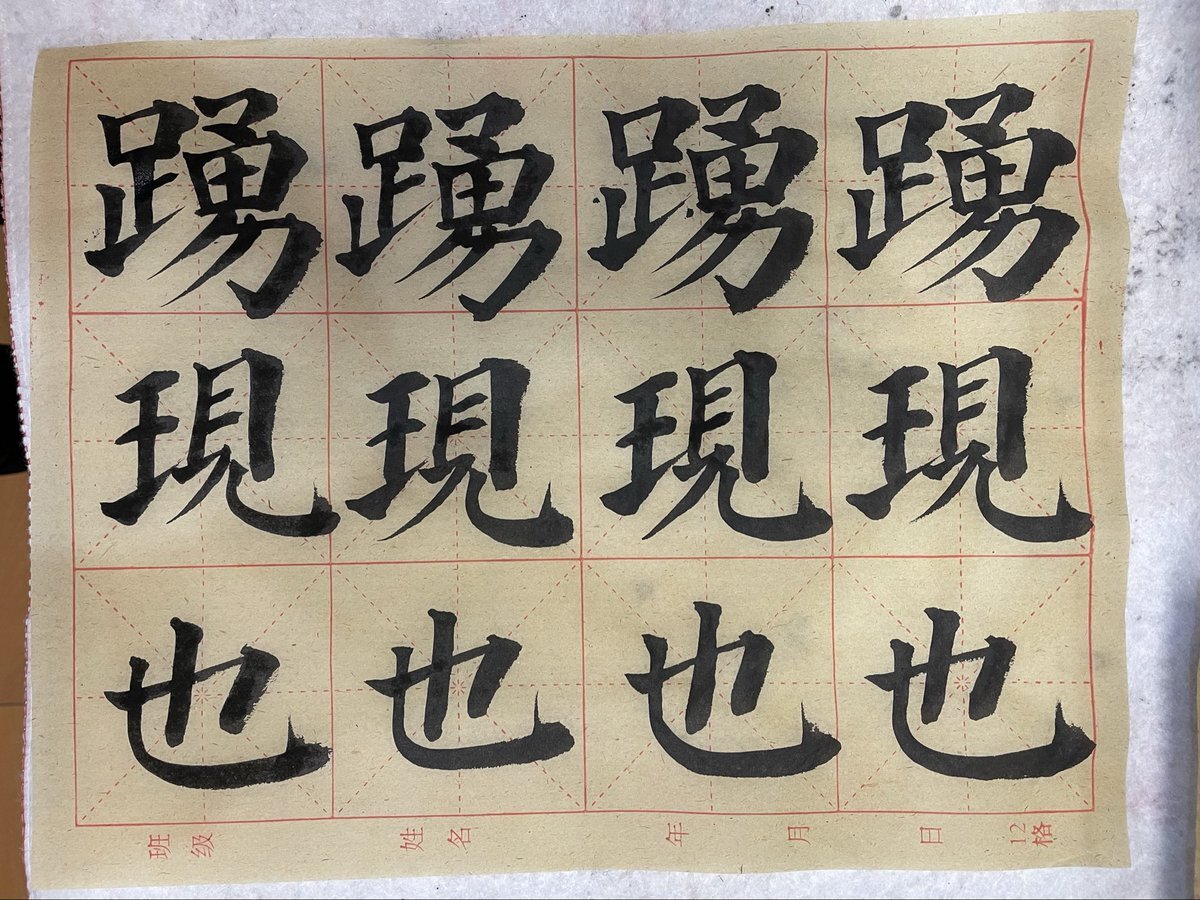 踴踴踴踴
現現現現
也也也也
班级 姓名 年 月 日 12格